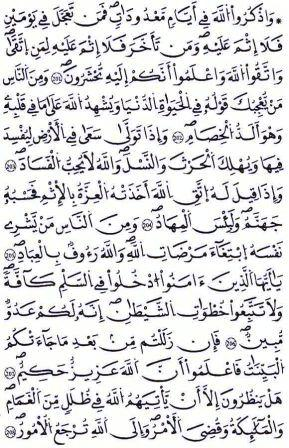 ۞ وَاذْكُرُوا اللَّهَ فِي أَيَّامٍ مَّعْدُودَاتٍ فَمَن تَعَجَّلَ فِي يَوْمَيْنِ
فَلَا إِثْمَ عَلَيْهِ وَمَن تَأَخَّرَ فَلَا إِثْمَ عَلَيْهِ لِمَنِ اتَّقَى
وَاتَّقُوا اللَّهَ وَاعْلَمُوا أَنَّكُمْ إِلَيْهِ تُحْشَرُونَ ٢٠١ وَمِنَ النَّاسِ
مَن يُعْجِبُكَ قَوْلُهُ فِي الْحَيَوٰةِ الدُّنْيَا وَيُشْهِدُ اللَّهَ عَلَىٰ مَا فِي قَلْبِهِ
وَهُوَ أَلَدُّ الْخِصَامِ ٢٠٢ وَإِذَا تَوَلَّىٰ سَعَىٰ فِي الْأَرْضِ لِيُفْسِدَ
فِيهَا وَيُهْلِكَ الْحَرْثَ وَالنَّسْلَ وَاللَّهُ لَا يُحِبُّ الْفَسَادَ ٢٠٣
وَإِذَا قِيلَ لَهُ اتَّقِ اللَّهَ أَخَذَتْهُ الْعِزَّةُ بِالْإِثْمِ فَحَسْبُهُ
جَهَنَّمُ وَلَبِئْسَ الْمِهَادُ ٢٠٤ وَمِنَ النَّاسِ مَن يَشْرِي
نَفْسَهُ ابْتِغَاءَ مَرْضَاتِ اللَّهِ وَاللَّهُ رَءُوفٌ بِالْعِبَادِ ٢٠٥
يَٰأَيُّهَا الَّذِينَ ءَامَنُوا ادْخُلُوا فِي السَّلْمِ كَافَّةً
وَلَا تَتَّبِعُوا خُطُوَاتِ الشَّيْطَانِ إِنَّهُ لَكُمْ عَدُوٌّ
مُّبِينٌ ٢٠٦ فَإِن زَلَلْتُم مِّن بَعْدِ مَا جَاءَتْكُمُ
الْبَيِّنَاتُ فَاعْلَمُوا أَنَّ اللَّهَ عَزِيزٌ حَكِيمٌ ٢٠٧
هَلْ يَنظُرُونَ إِلَّا أَن يَأْتِيَهُمُ اللَّهُ فِي ظُلَلٍ مِّنَ الْغَمَامِ
وَالْمَلَٰئِكَةُ وَقُضِيَ الْأَمْرُ وَإِلَى اللَّهِ تُرْجَعُ الْأُمُورُ ٢٠٨